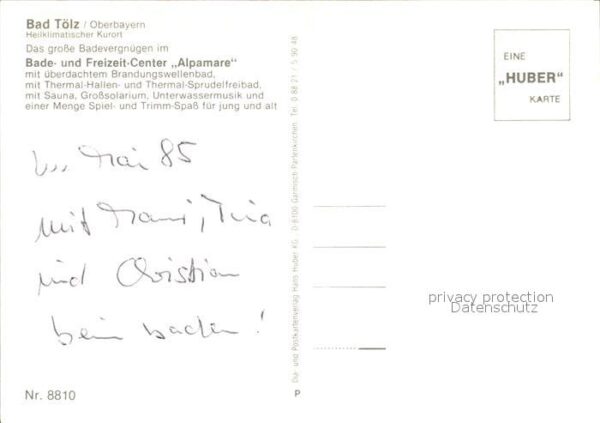 Bad Tölz / Oberbayern
Heilklimatischer Kurort
Das große Badevergnügen im
Bade- und Freizeit-Center „Alpamare"
mit überdachtem Brandungswellenbad,
mit Thermal-Hallen- und Thermal-Sprudelfreibad,
mit Sauna, Großsolarium, Unterwassermusik und
einer Menge Spiel- und Trimm-Spaß für jung und alt
Mai 85
mit Mami, Tina
und Christian
beim baden!
Nr. 8810
Dia- und Postkartenverlag Hans Huber KG · D-8100 Garmisch-Partenkirchen, Tel. 0 88 21 / 5 90 48
P
EINE
„HUBER"
KARTE
privacy protection
Datenschutz